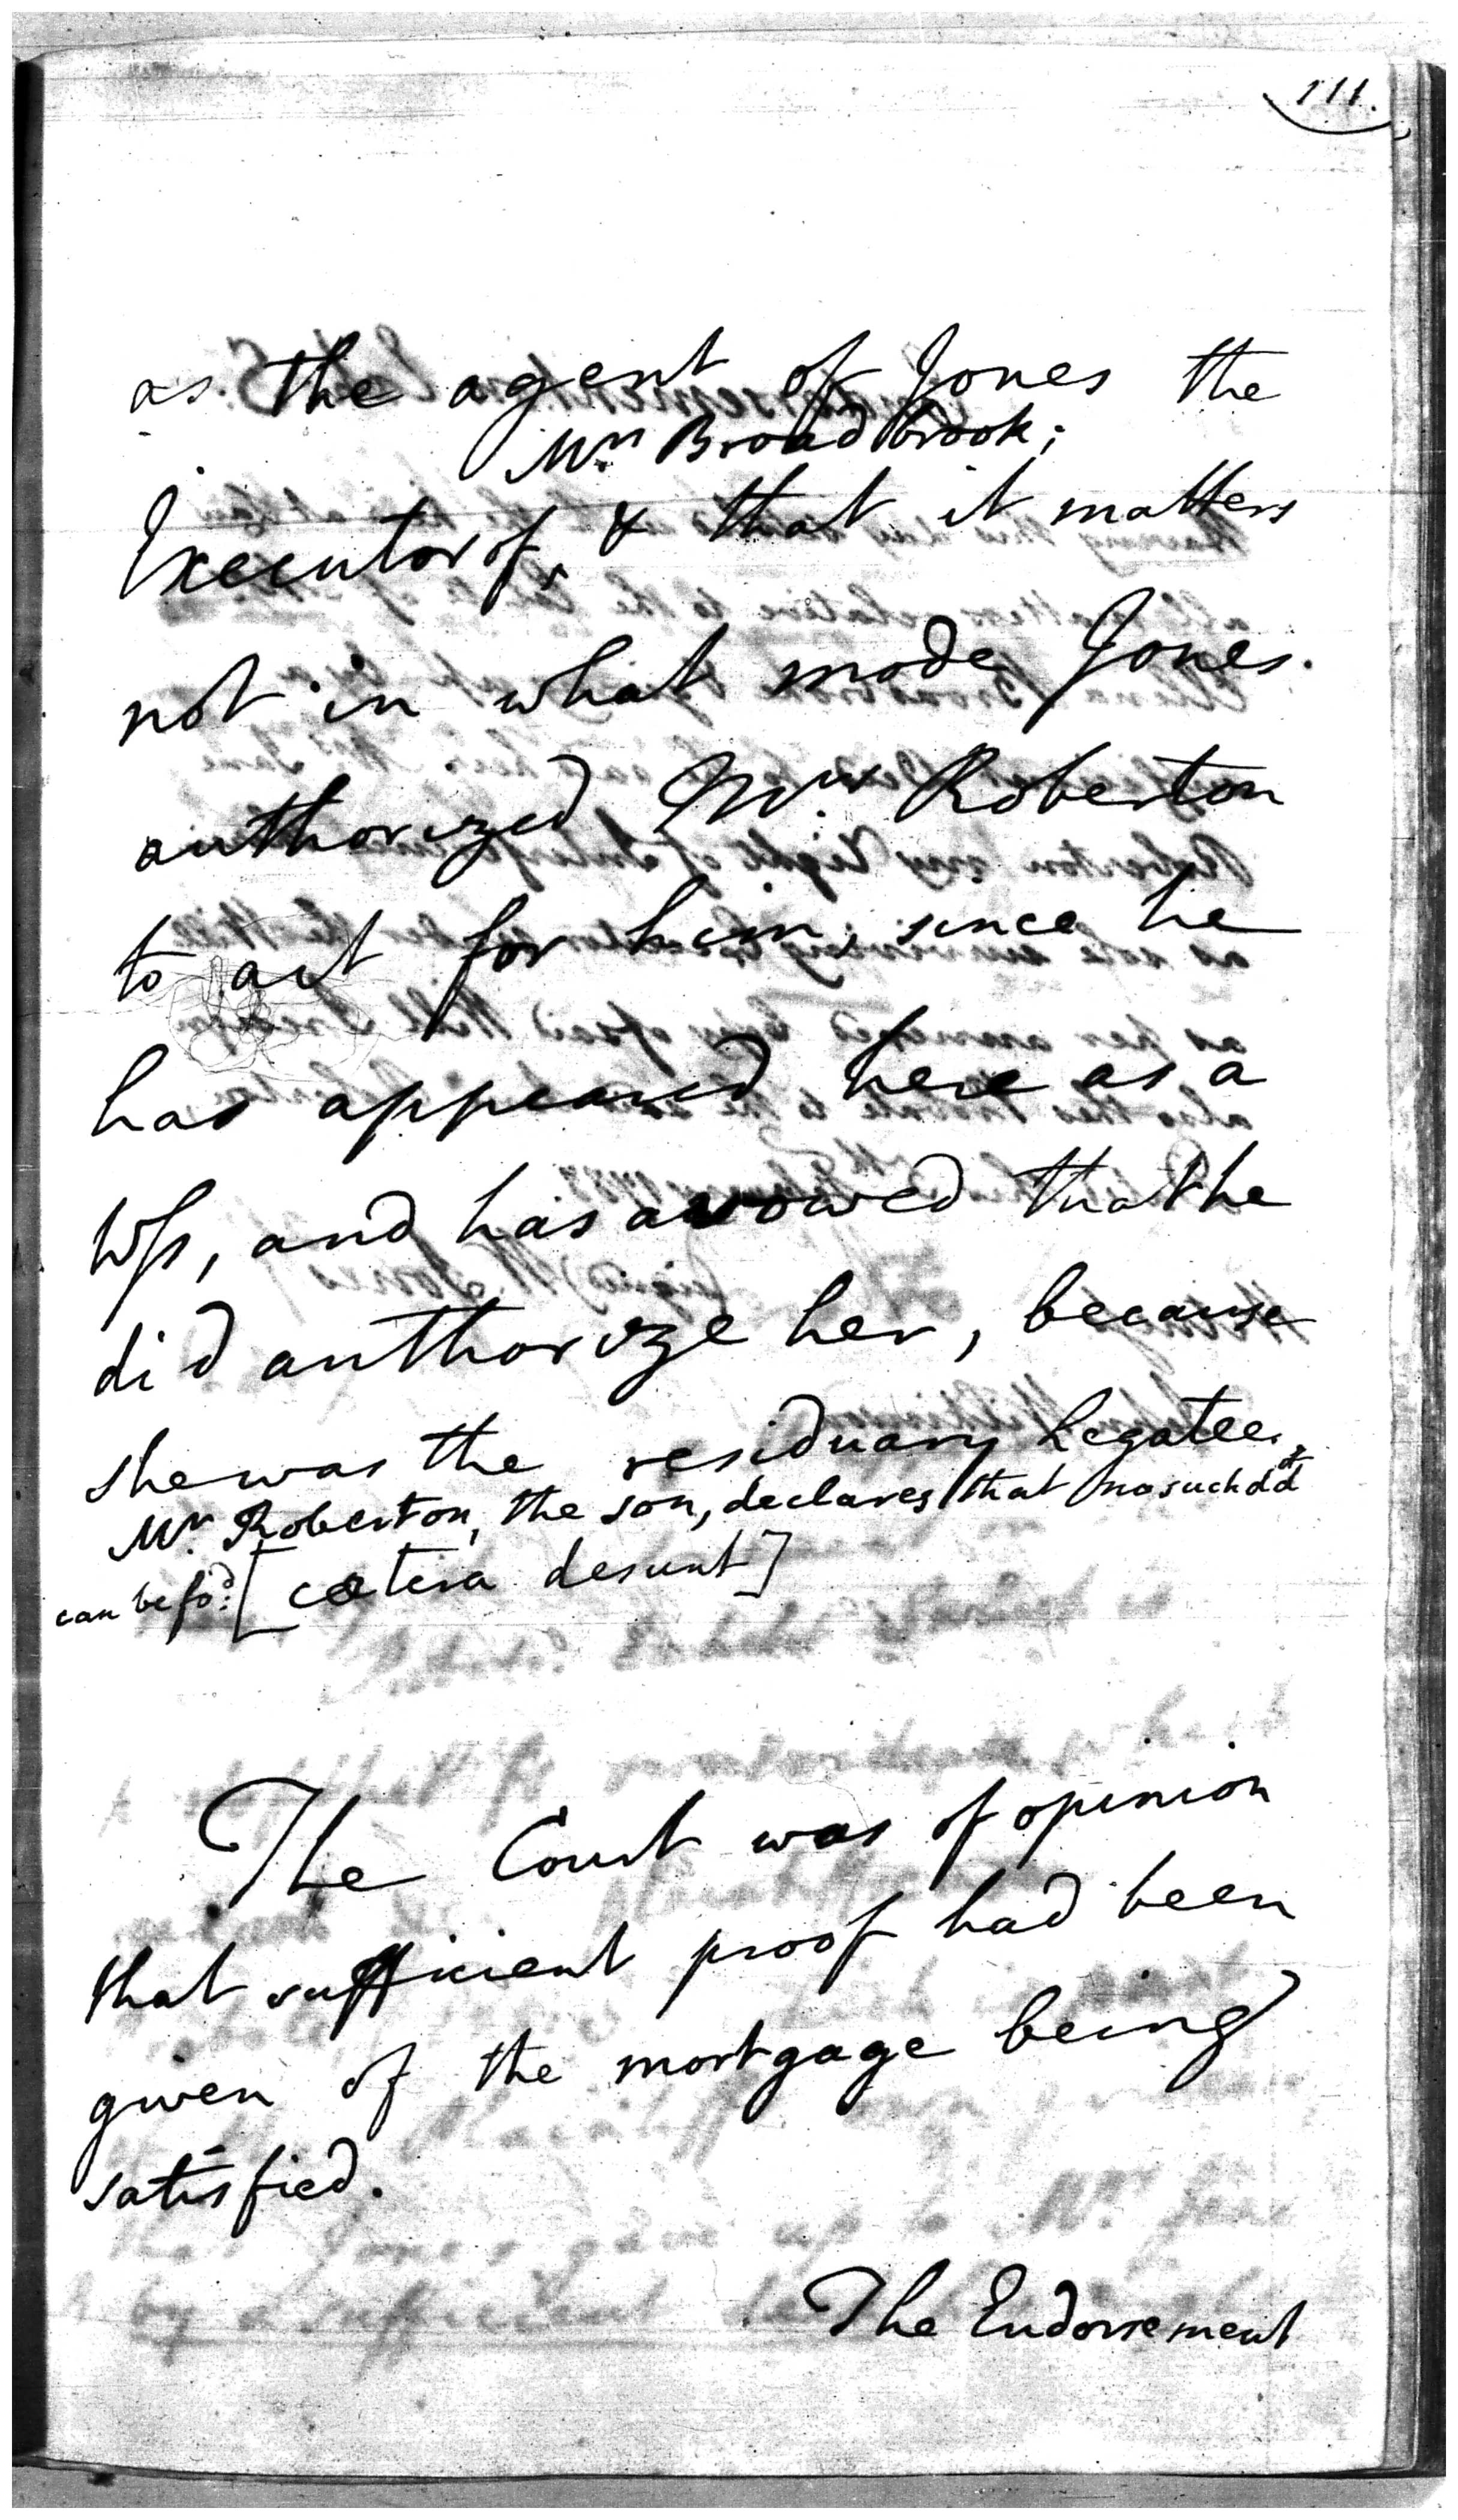 111.
as the agent of Jones the
Mrs Broadbrook;
Executor of ‸ & that it matters
not in what mode Jones
authorized Mrs. Roberton
to act for him, since he
has appeared here as a
Wss, and has avowed that he
did authorize her, because
she was the residuary Legatee.
Mr. Roberton, the son, declares that no such
can be fo:d [cœtera desunt]
The Court was of opinion
that sufficient proof had been
given of the mortgage being
satisfied.
The Endorsement